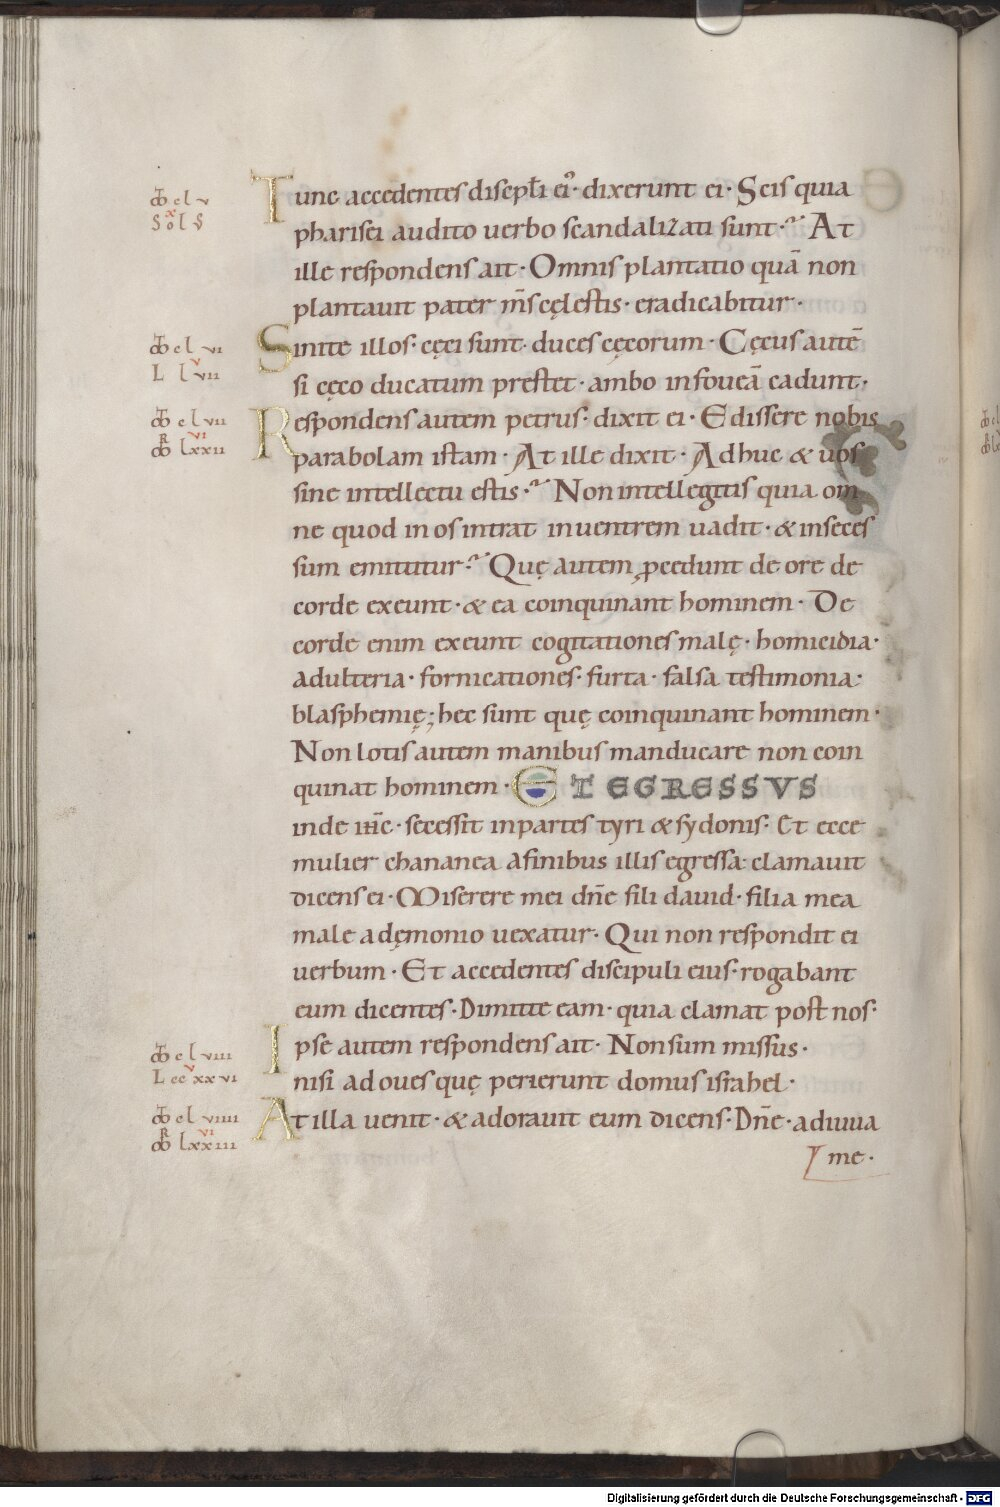 Tunc accedentes discpl̄i ei᷒· dixerunt ei· Scis quia
pharisei audito uerbo scandalizati sunt·? At
ille respondens ait· Omnis plantatio quā non
plantauit pater m̄s cęlestis· eradicabitur·
Sinite illos· cęci sunt· duces cęcorum· Cęcus autē
si cęco ducatum prestet· ambo in foueā cadunt·
Respondens autem petrus· dixit ei· Edissere nobis
parabolam istam· At ille dixit· Adhuc & uos
sine intellectu estis·? Non intellegitis quia om
ne quod in os intrat in uentrem uadit· & in seces
sum emittitur·? Quę autem ꝓcedunt de ore de
corde exeunt· & ea coinquinant hominem· De
corde enim exeunt cogitationes malę· homicidia·
adulteria· fornicationes· furta· falsa testimonia·
blasphemię; hec sunt quę coinquinant hominem·
Non lotis autem manibus manducare non coin
quinat hominem· ET EGRESSVS
inde ih̄c· secessit in partes tyri & sydonis· Et ecce
mulier chananea a finibus illis egressa clamauit
dicens ei· Miserere mei dn̄e fili dauid· filia mea
male a dęmonio uexatur· Qui non respondit ei
uerbum· Et accedentes discipuli eius· rogabant
eum dicentes· Dimitte eam· quia clamat post nos·
Ipse autem respondens ait· Non sum missus·
nisi ad oues quę perierunt domus israhel·
At illa uenit· & adorauit eum dicens· Dn̄e· adiuua
me·
cl v
x
Sol
cl vi
v
L lvii
cl vii
vi
R
lxxii
cl viii
v
L cc xxvi
cl viiii
vi
R
lxxiii
Digitalisierung gefördert durch die Deutsche Forschungsgemeinschaft - DFG